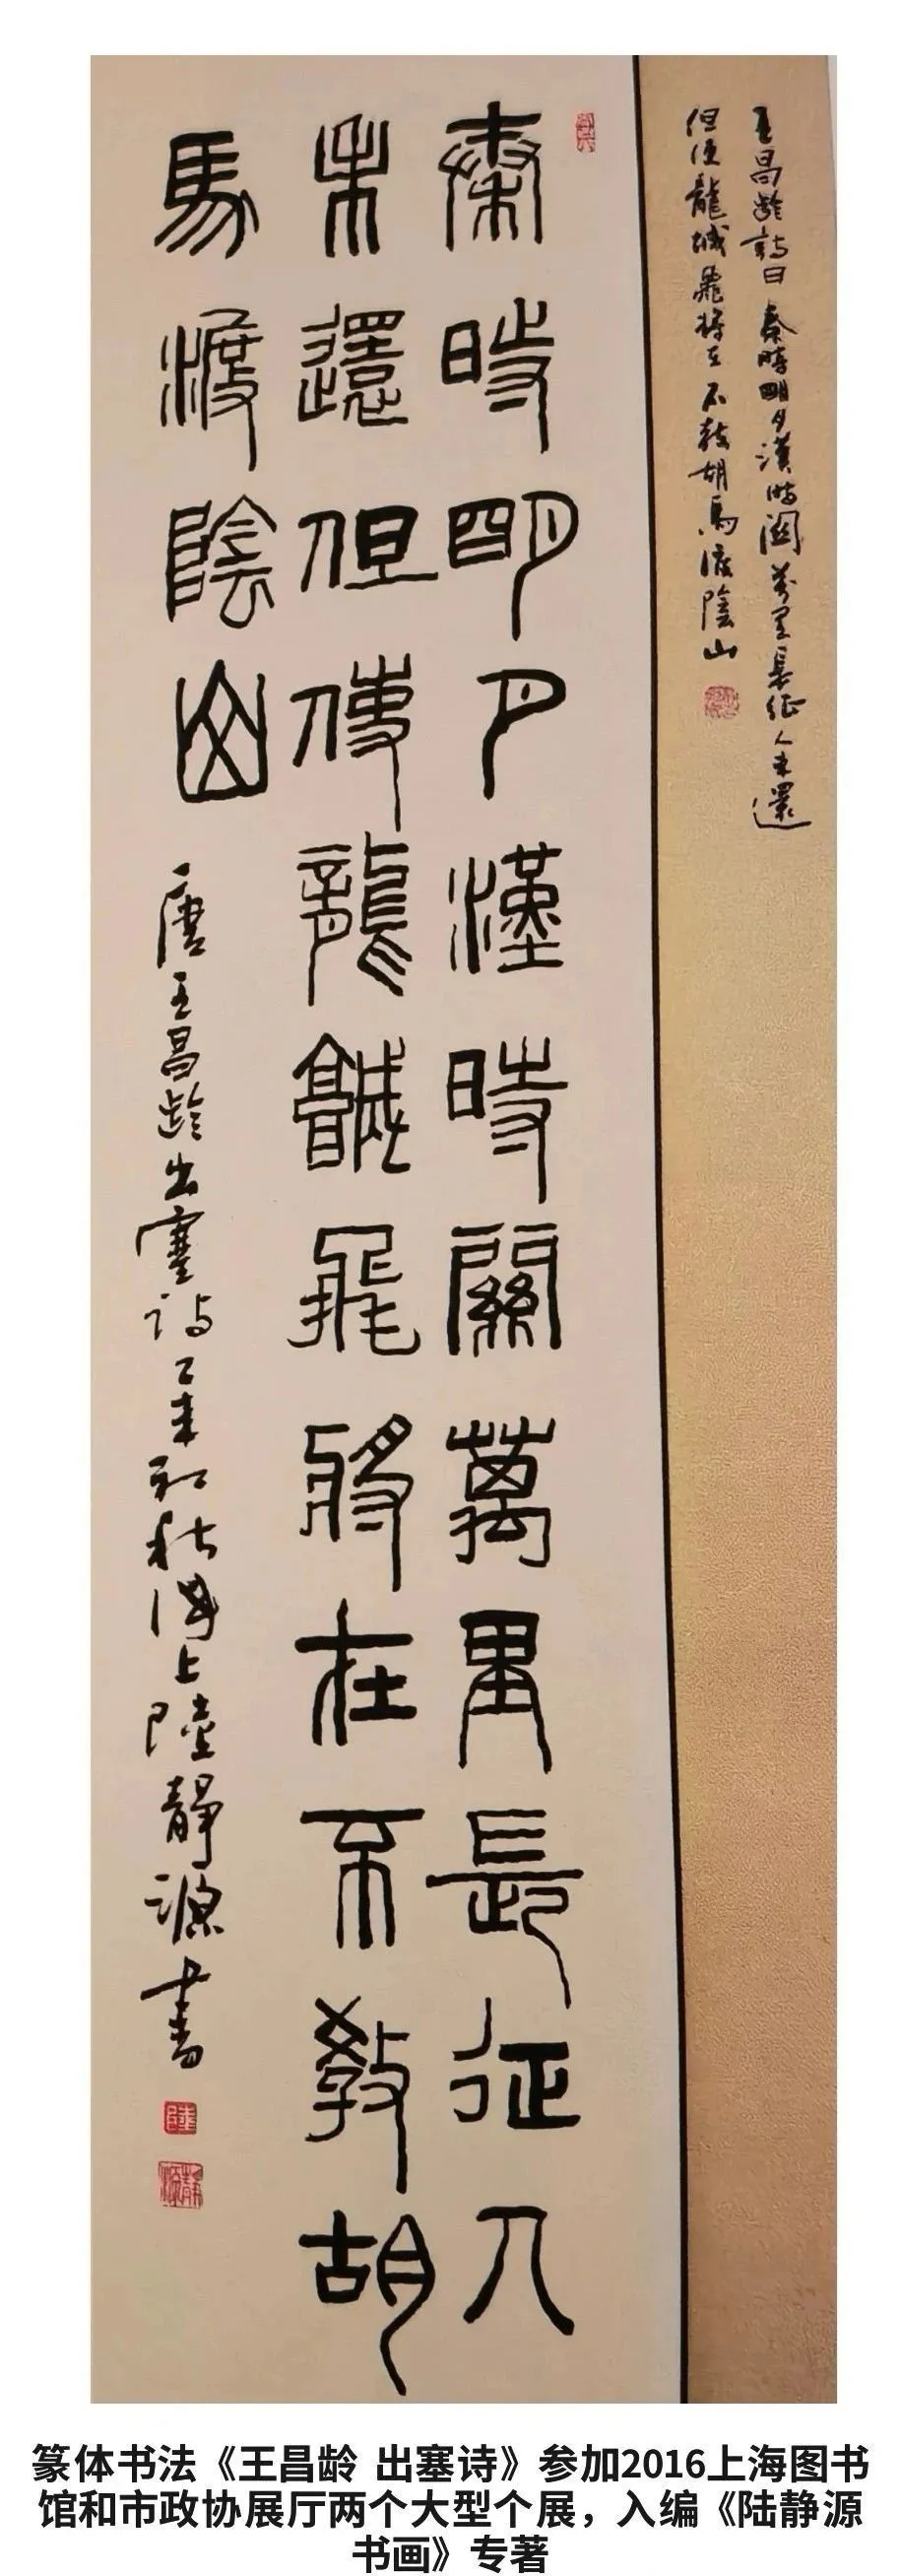 王昌齡詩曰秦時明月漢時關萬里長征人未還
但使龍城飛將在不教胡馬渡陰山
秦時明月漢時關萬里長征人
未還但使龍城飛將在不教胡
馬渡陰山
唐王昌齡出塞詩乙未初秋海上陸靜源書
陸
靜源
篆体书法《王昌龄 出塞诗》参加2016上海图书
馆和市政协展厅两个大型个展，入编《陆静源
书画》专著